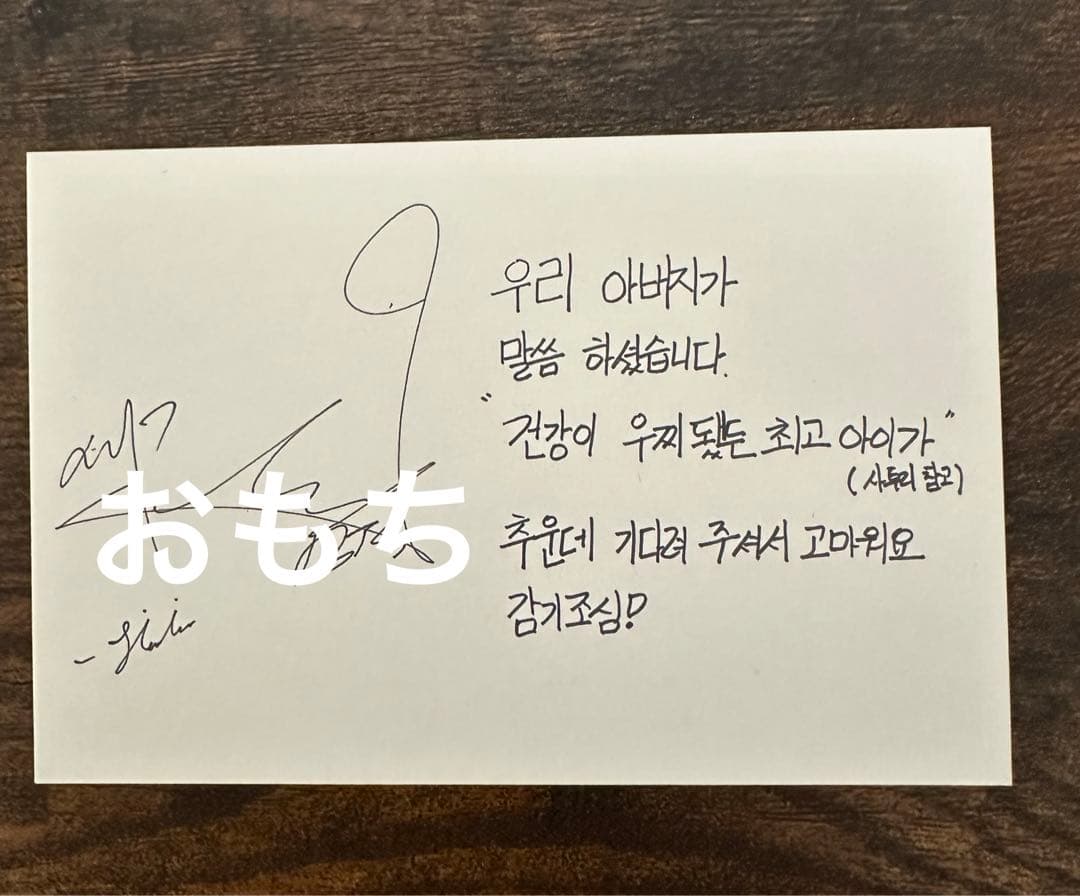 우리 아버지가
말씀 하셨습니다.
"건강이 우찌됐든 최고 아이가"
(사투리 참고)
추운데 기다려 주셔서 고마워요
감기조심!
おもち